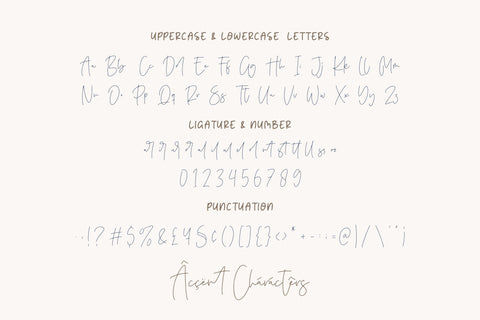 UPPERCASE & LOWERCASE LETTERS
Aa Bb Cc Dd Ee Ff Gg Hh Ii Jj Kk Ll Mm
Nn Oo Pp Qq Rr Ss Tt Uu Vv Ww Xx Yy Zz
LIGATURE & NUMBER
0123456789
PUNCTUATION
.,!?#$%&£¥§¢()[]{}<>*+-:;=@|/\'"¡
Âccënt Cháráctêrs